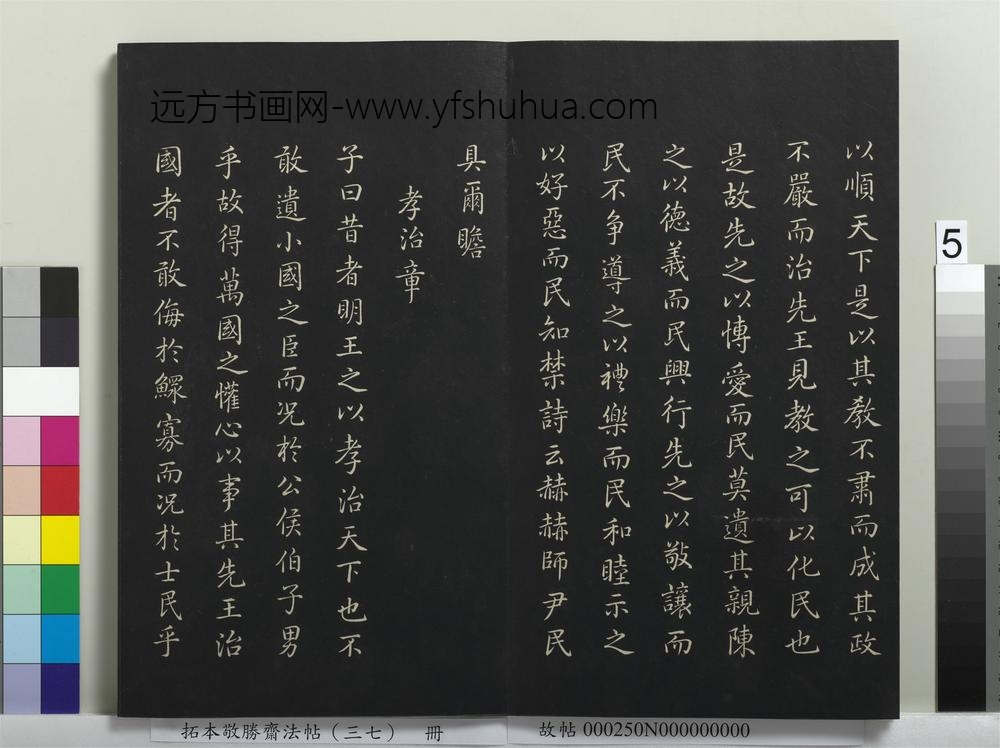 远方书画网-www.yfshuhua.com
以順天下是以其教不肅而成其政
不嚴而治先王見教之可以化民也
是故先之以愽愛而民莫遺其親陳
之以德義而民興行先之以敬讓而
民不争導之以禮樂而民和睦示之
以好惡而民知禁詩云赫赫師尹民
具爾瞻
孝治章
子曰昔者明王之以孝治天下也不
敢遺小國之臣而况於公侯伯子男
乎故得萬國之懽心以事其先王治
國者不敢侮於鰥寡而况於士民乎
5
拓本敬勝齋法帖（三七） 冊
故帖 000250N000000000